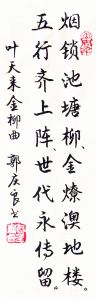 烟锁池塘柳、金燎澳地楼。
五行齐上阵、世代永传留。
叶天来金柳曲 郭庆良书